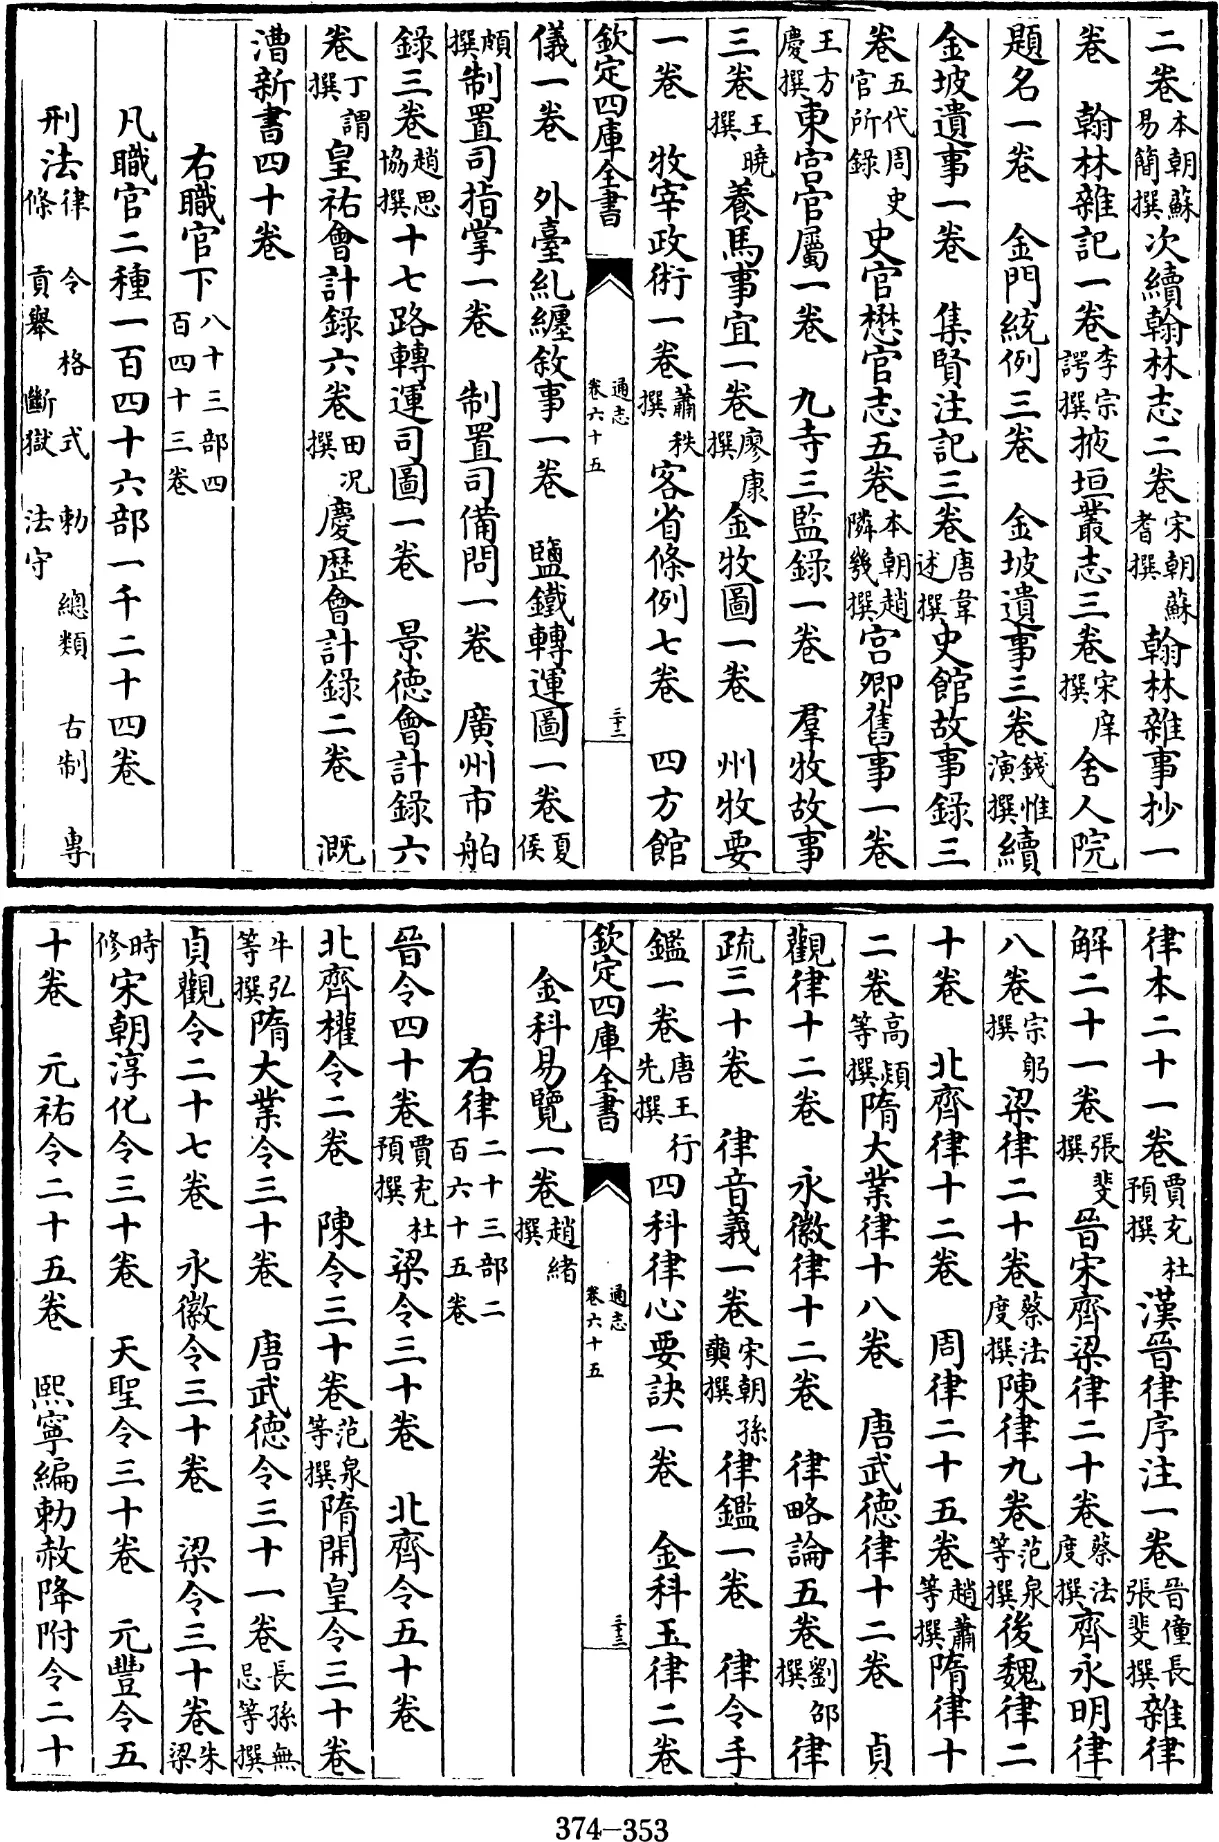 二卷本朝蘇易簡撰次續翰林志二卷宋朝蘇耆撰翰林雜事抄一
卷　翰林雜記一卷李宗諤撰掖垣叢志三卷宋庠撰舍人院
題名一卷　金門統例三卷　金坡遺事三卷錢惟演撰續
金坡遺事一卷　集賢注記三卷唐韋述撰史館故事錄三
卷五代周史官所錄史官懋官志五卷本朝趙隣幾撰宫卿舊事一卷
王方慶撰東宫官屬一卷　九寺三監錄一卷　羣牧故事
三卷王曉撰養馬事宜一卷廖康撰金牧圖一卷　州牧要
一卷　牧宰政術一卷蕭秩撰客省條例七卷　四方館
欽定四庫全書　通志卷六十五　三十二
儀一卷　外臺糺纏敘事一卷　鹽鐵轉運圖一卷夏侯
頗撰制置司指掌一卷　制置司備問一卷　廣州市舶
錄三卷趙思協撰十七路轉運司圖一卷　景德會計錄六
卷丁謂撰皇祐會計錄六卷田况撰慶歴會計錄二卷　溉
漕新書四十卷
右職官下八十三部四百四十三卷
凡職官二種一百四十六部一千二十四卷
刑法律　令　格　式　勅　總類　古制　專條　貢舉　斷獄　法守
律本二十一卷賈充杜預撰漢晉律序注一卷晉僮長張斐撰雜律
解二十一卷張斐撰晉宋齊梁律二十卷蔡法度撰齊永明律
八卷宗躬撰梁律二十卷蔡法度撰陳律九卷范泉等撰後魏律二
十卷　北齊律十二卷　周律二十五卷趙肅等撰隋律十
二卷高熲等撰隋大業律十八卷　唐武德律十二卷　貞
觀律十二卷　永徽律十二卷　律略論五卷劉邵撰律
疏三十卷　律音義一卷宋朝孫奭撰律鑑一卷　律令手
鑑一卷唐王行先撰四科律心要訣一卷　金科玉律二卷
欽定四庫全書　通志卷六十五　三十三
金科易覽一卷趙緒撰
右律二十三部二百六十五卷
晉令四十卷賈充杜預撰梁令三十卷　北齊令五十卷
北齊權令二卷　陳令三十卷范泉等撰隋開皇令三十卷
牛弘等撰隋大業令三十卷　唐武德令三十一卷長孫無忌等撰
貞觀令二十七卷　永徽令三十卷　梁令三十卷朱梁
時修宋朝淳化令三十卷　天聖令三十卷　元豐令五
十卷　元祐令二十五卷　熙寧編勅赦降附令二十
374-353